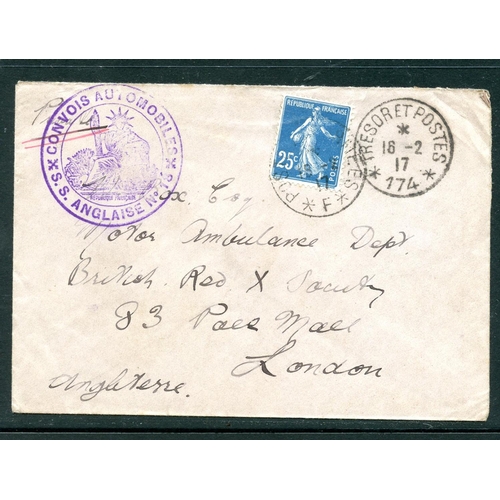 CONVOIS AUTOMOBILES
S.S. ANGLAISE No 16
REPUBLIQUE FRANÇAISE
REPUBLIQUE FRANÇAISE
25c
POSTES
* F *
TRESOR ET POSTES
*
18-2
17
* 174 *
Esq.
Motor Ambulance Dept.
British Red X Society
83 Pall Mall
London
Angleterre.